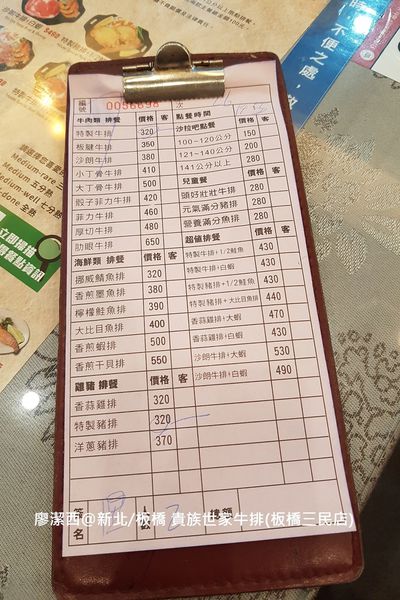 編號 0096698 次
點餐時間
牛肉類 排餐 價格 客
特製牛排 320
板腱牛排 350
沙朗牛排 380
小丁骨牛排 410
大丁骨牛排 500
骰子菲力牛排 420
菲力牛排 460
厚切牛排 480
肋眼牛排 650
海鮮類 排餐 價格 客
挪威鯖魚排 320
香煎墨魚排 380
檸檬鮭魚排 390
大比目魚排 400
香煎蝦排 500
香煎干貝排 550
雞豬 排餐 價格 客
香蒜雞排 320
特製豬排 320
洋蔥豬排 370
沙拉吧點餐 價格 客
100~120公分 150
121~140公分 200
141公分以上 280
兒童餐 價格 客
頭好壯壯牛排 280
元氣滿分豬排 280
營養滿分魚排 280
超值排餐 價格 客
特製牛排+1/2鮭魚 430
特製牛排+白蝦 430
特製豬排+1/2鮭魚 430
特製豬排+大比目魚排 440
香蒜雞排+大蝦 470
香蒜雞排+白蝦 430
沙朗牛排+大蝦 530
沙朗牛排+白蝦 490
簽名
人數 2
樓顧
Medium-rare 三
Medium 五分熟
Medium-well 七分熟
全熟
立即掃描
不便之處,
廖潔西@新北/板橋 貴族世家牛排(板橋三民店)